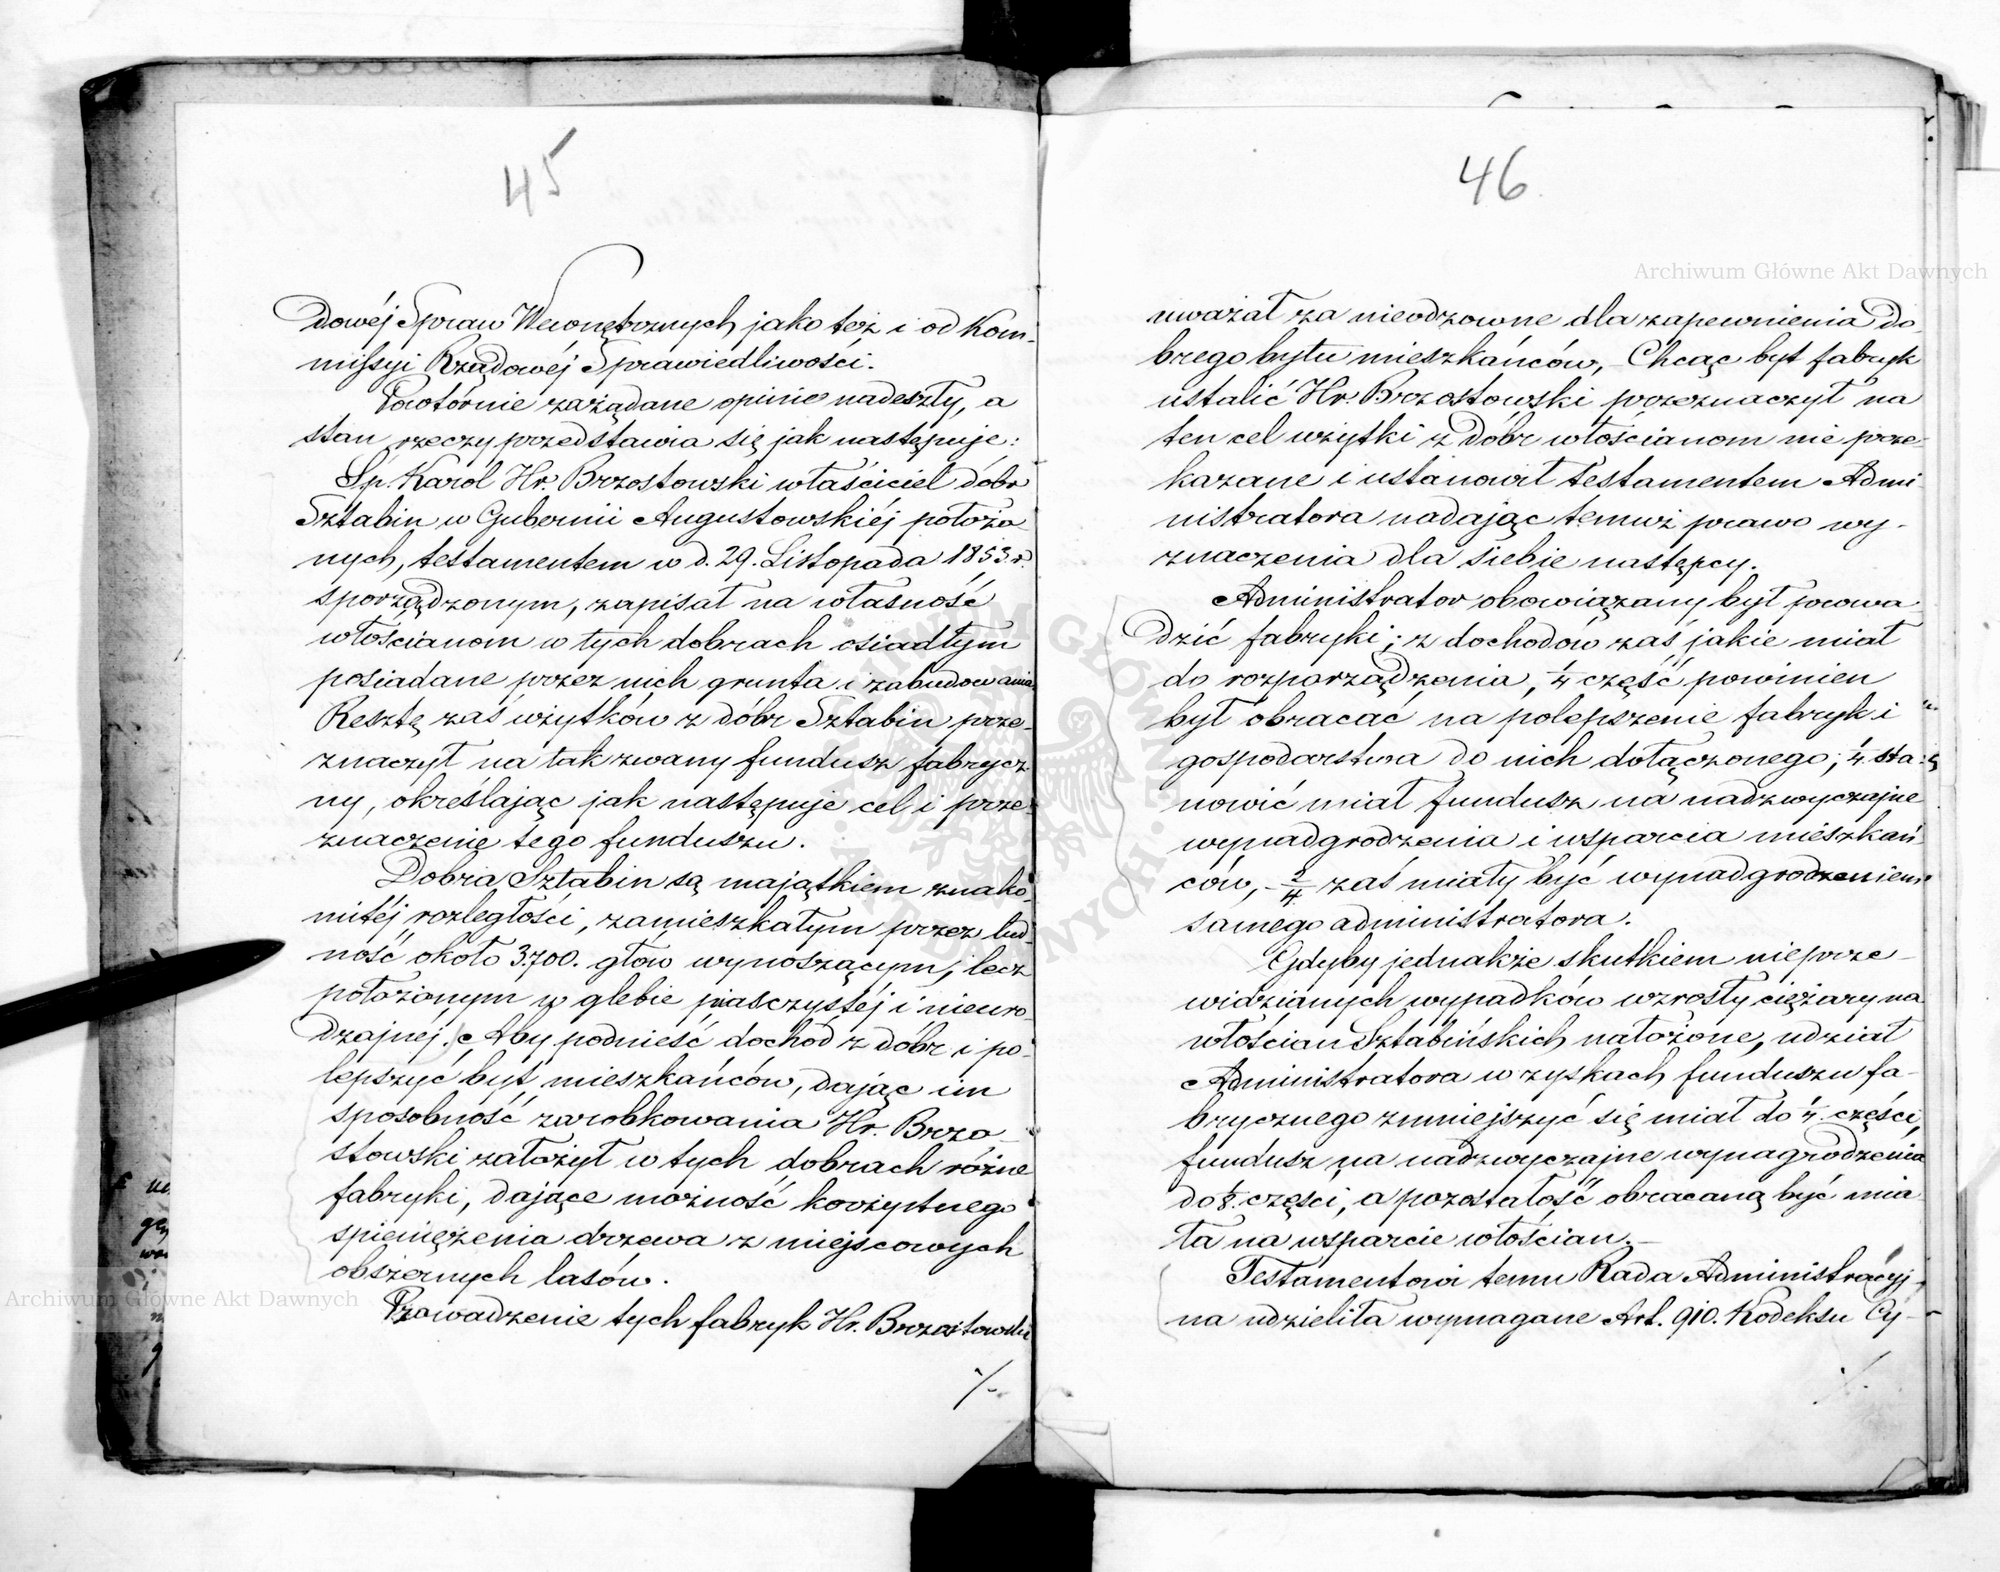 45
dowéj Spraw Wewnętrznych jako też i od Kom-
missyi Rządowéj Sprawiedliwości.
Powtórnie zażądane opinie nadeszły, a
stan rzeczy przedstawia się jak następuje:
Ś.p. Karól Hr. Brzostowski właściciel dóbr
Sztabin w Gubernii Augustowskiéj położo
nych, testamentem w d. 29. Listopada 1853 r.
sporządzonym, zapisał na własność
włościanom w tych dobrach osiadłym
posiadane przez nich grunta i zabudowania.
Resztę zaś użytków z dóbr Sztabin prze-
znaczył na tak zwany fundusz fabrycz
ny, określając jak następuje cel i prze-
znaczenie tego funduszu.
Dobra Sztabin są majątkiem znako-
mitéj rozległości, zamieszkałym przez lud-
ność około 3700. głów wynoszącym, lecz
położonym w glebie piasczystéj i nieuro-
dzajnej. Aby podnieść dochod z dóbr i po-
lepszyć byt mieszkańców, dając im
sposobność zarobkowania Hr. Brzo-
stowski założył w tych dobrach różne
fabryki, dające możność korzystnego
spieniężenia drzewa z miejscowych
obszernych lasów.
Prowadzenie tych fabryk Hr. Brzostowski
./.
46
uważał za nieodzowne dla zapewnienia do-
brego bytu mieszkańców, – Chcąc byt fabryk
ustalić Hr. Brzostowski przeznaczył na
ten cel użytki z dóbr włościanom nie prze-
kazane i ustanowił testamentem Admi
nistratora nadając temuż prawo wy-
znaczenia dla siebie następcy.
Administrator obowiązany był prowa
dzić fabryki; z dochodów zaś jakie miał
do rozparządzenia, 1/4 część powinien
był obracać na polepszenie fabryk i
gospodarstwa do nich dołączonego; 1/4 sta-
nowić miał fundusz na nadzwyczajne
wynadgrodzenia i wsparcia mieszkań-
ców, – 2/4 zaś miały być wynadgrodzeniem
samego administratora.
Gdyby jednakże skutkiem nieprze-
widzianych wypadków wzrosły ciężary na
włościan Sztabińskich nałożone, udział
Administratora w zyskach funduszu fa-
brycznego zmniejszyć się miał do 1/4. części,
fundusz na nadzwyczajne wynagrodzenia
do 1/8. części, a pozostałość obracaną być mia
ła na wsparcie włościan. –
Testamentowi temu Rada Administracyj-
na udzieliła wymagane Art. 910. Kodeksu Cy-
./.
Archiwum Główne Akt Dawnych
Archiwum Główne Akt Dawnych